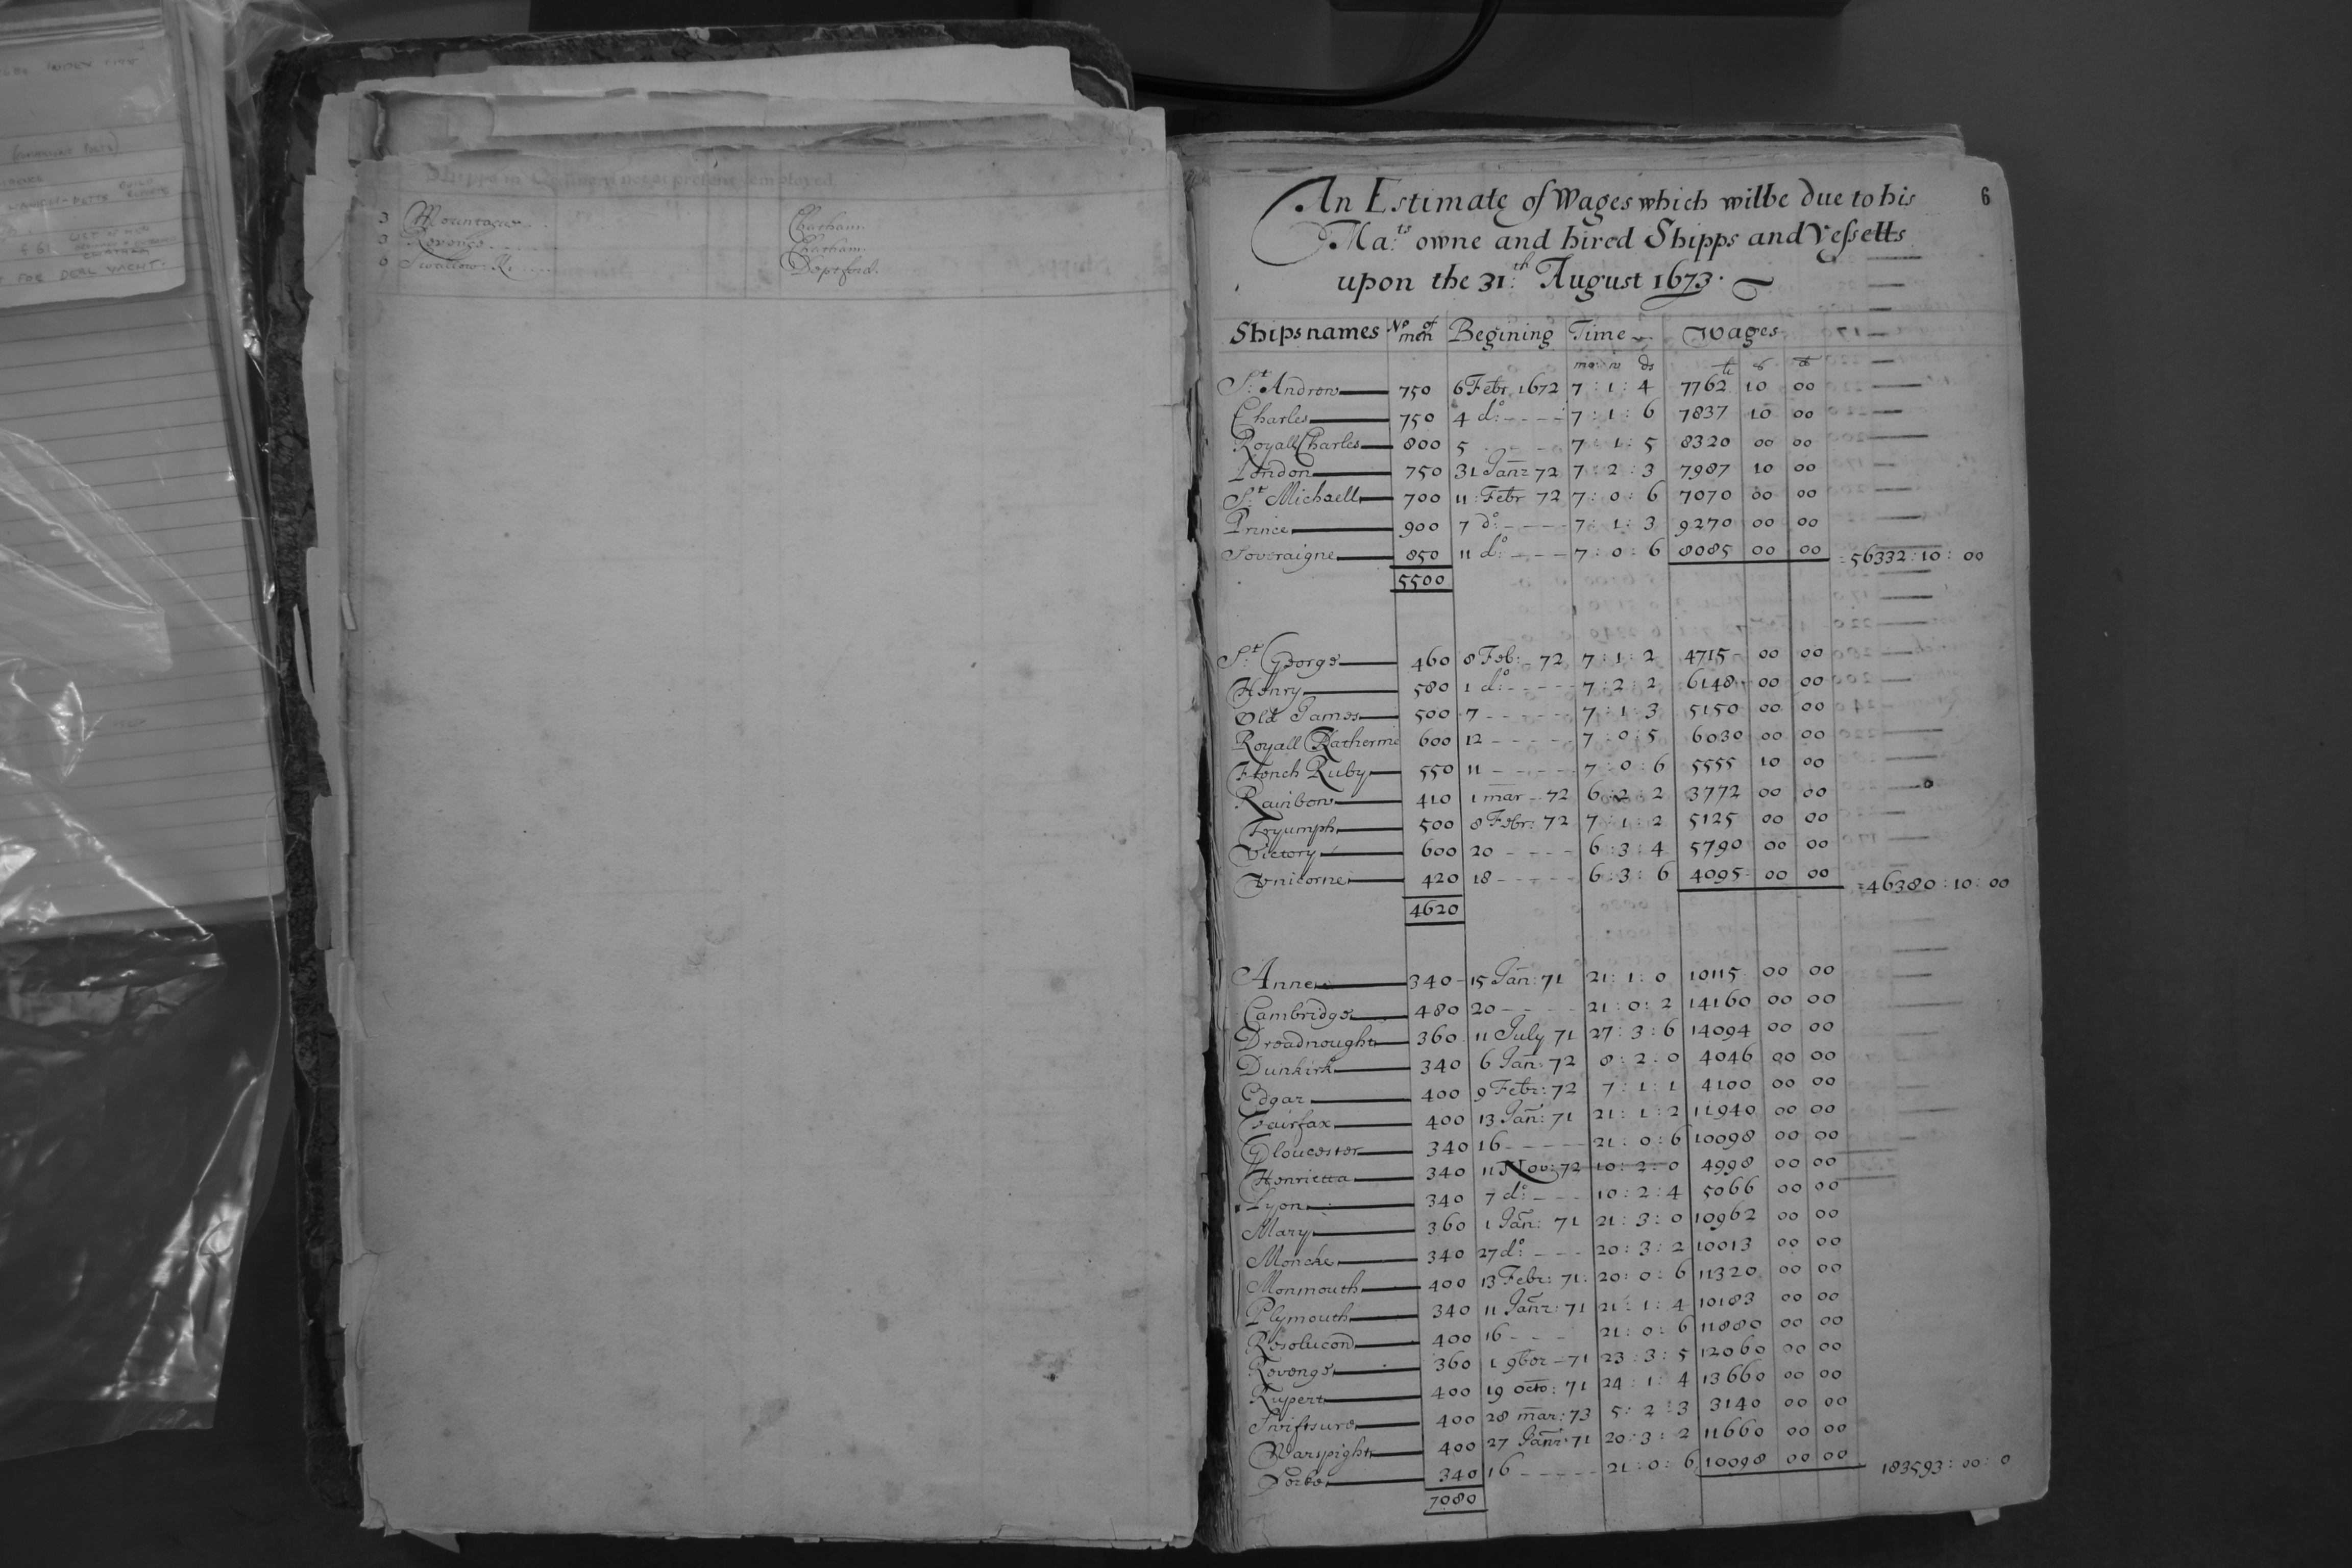 INDEX
FOR DEAL YACHT.
Shipps in Ordinary not at present employed.
3 Mountague Chatham.
3 Revenge Chatham.
6 Swallow K. Deptford.
6
An Estimate of Wages which wilbe due to his
Ma:ts owne and hired Shipps and Vessells
upon the 31:th August 1673.
Ships names No of men Begining Time Wages
mo w ds li s d
St: Andrew 750 6 Febr. 1672 7 : 1 : 4 7762 10 00
Charles 750 4 do: 7 : 1 : 6 7837 10 00
Royall Charles 800 5 7 : 1 : 5 8320 00 00
London 750 31 Janr 72 7 : 2 : 3 7987 10 00
St: Michaell 700 11 : Febr 72 7 : 0 : 6 7070 00 00
Prince 900 7 do: 7 : 1 : 3 9270 00 00
Soveraigne 850 11 do: 7 : 0 : 6 8085 00 00 56332 : 10 : 00
5500
St: George 460 8 Feb: 72 7 : 1 : 2 4715 00 00
Henry 580 1 do: 7 : 2 : 2 6148 00 00
Old James 500 7 7 : 1 : 3 5150 00 00
Royall Katherine 600 12 7 : 0 : 5 6030 00 00
French Ruby 550 11 7 : 0 : 6 5555 10 00
Rainbow 410 1 mar 72 6 : 2 : 2 3772 00 00
Tryumph 500 8 Febr: 72 7 : 1 : 2 5125 00 00
Victory 600 20 6 : 3 : 4 5790 00 00
Vnicorne 420 18 6 : 3 : 6 4095 00 00 46380 : 10 : 00
4620
Anne 340 15 Jan: 71 21 : 1 : 0 10115 00 00
Cambridge 480 20 21 : 0 : 2 14160 00 00
Dreadnought 360 11 July 71 27 : 3 : 6 14094 00 00
Dunkirk 340 6 Jan: 72 8 : 2 : 0 4046 00 00
Edgar 400 9 Febr: 72 7 : 1 : 1 4100 00 00
Fairfax 400 13 Jan: 71 21 : 1 : 2 11940 00 00
Gloucester 340 16 21 : 0 : 6 10098 00 00
Henrietta 340 11 Nov: 72 10 : 2 : 0 4998 00 00
Lyon 340 7 do: 10 : 2 : 4 5066 00 00
Mary 360 1 Jan: 71 21 : 3 : 0 10962 00 00
Moncke 340 27 do: 20 : 3 : 2 10013 00 00
Monmouth 400 13 Febr: 71: 20 : 0 : 6 11320 00 00
Plymouth 340 11 Janr: 71 21 : 1 : 4 10183 00 00
Resolucon 400 16 21 : 0 : 6 11880 00 00
Revenge 360 1 9ber 71 23 : 3 : 5 12060 00 00
Rupert 400 19 octo: 71 24 : 1 : 4 13660 00 00
Swiftsure 400 28 mar: 73 5 : 2 : 3 3140 00 00
Warspight 400 27 Janr: 71 20 : 3 : 2 11660 00 00
Yorke 340 16 21 : 0 : 6 10098 00 00 183593 : 00 : 0
7080